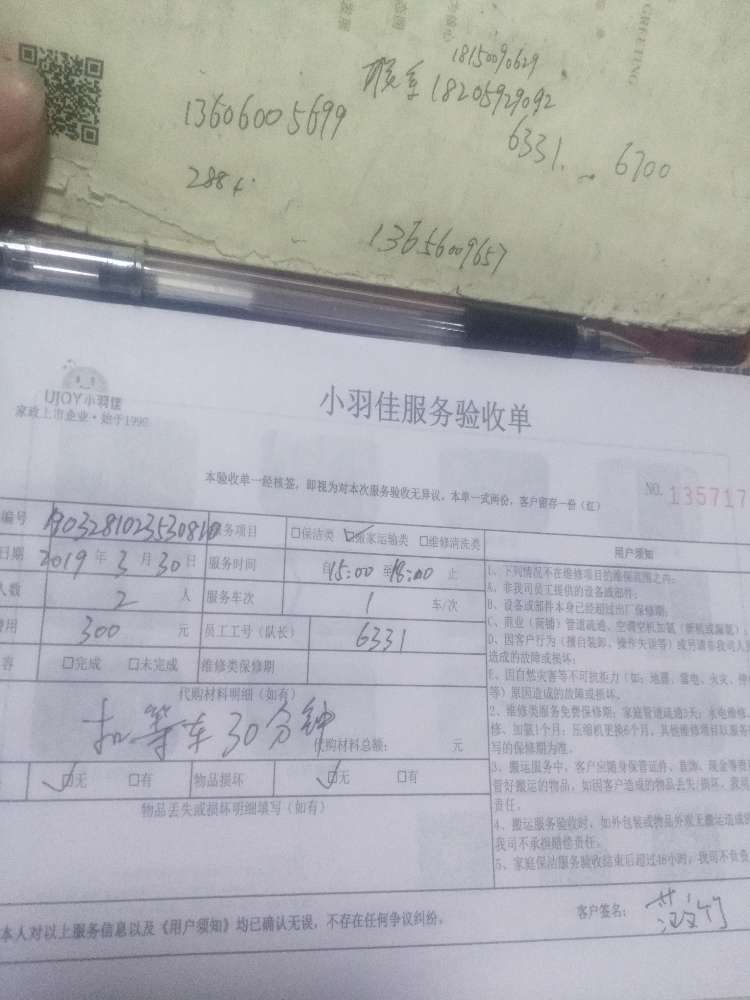 GREETING
18150090629
联系18205929092
13606005699
6331. — 6700
288
13656009657
UJOY小羽佳
家政上市企业·始于1997
小羽佳服务验收单
本验收单一经核签，即视为对本次服务验收无异议。本单一式两份，客户留存一份（红）
NO. 135717
编号 服务项目 □保洁类 ☑搬家运输类 □维修清洗类
日期 2019年3月30日 服务时间 自15:00至18:00止
人数 2 人 服务车次 1 车/次
费用 300 元 员工工号（队长） 6331
容 □完成 □未完成 维修类保修期
代购材料明细（如有）
扣等车30分钟
代购材料总额： 元
☑无 □有 物品损坏 ☑无 □有
物品丢失或损坏明细填写（如有）
用户须知
1、下列情况不在维修项目的维保范围之内：
A、非我司员工提供的设备或部件；
B、设备或部件本身已经超过出厂保修期；
C、商业（商铺）管道疏通、空调空机加氟（新机或漏氟）
D、因客户行为（擅自装卸、操作失误等）或另请非我司人员
造成的故障或损坏；
E、因自然灾害等不可抗拒力（如：地震、雷电、火灾、停
等）原因造成的故障或损坏。
2、维修类服务免费保修期：家庭管道疏通3天；水电维修、
修、加氟1个月；压缩机更换6个月，其他维修项目以服务
写的保修期为准。
3、搬运服务中，客户应随身保管证件、首饰、现金等贵
管好搬运的物品，如因客户造成的物品丢失/损坏，我司
责任。
4、搬运服务验收时，如外包装或物品外观无搬运造成的
我司不承担赔偿责任。
5、家庭保洁服务验收结束后超过48小时，我司不负责
本人对以上服务信息以及《用户须知》均已确认无误，不存在任何争议纠纷。
客户签名：